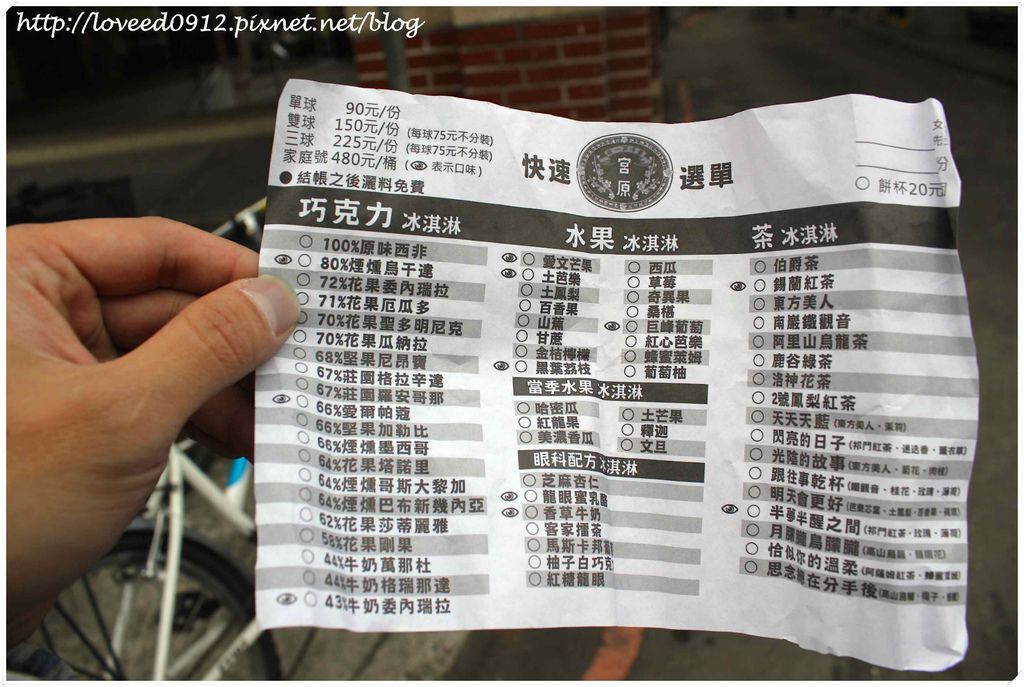 http://loveed0912.pixnet.net/blog
單球 90元/份
雙球 150元/份 (每球75元不分裝)
三球 225元/份 (每球75元不分裝)
家庭號 480元/桶 ( 表示口味)
●結帳之後灑料免費
快速 宮原 選單
女
份
餅杯20元
巧克力 冰淇淋
100%原味西非
80%煙燻烏干達
72%花果委內瑞拉
71%花果厄瓜多
70%花果聖多明尼克
70%花果瓜納拉
68%堅果尼昂寶
67%莊園格拉辛達
67%莊園羅安哥那
66%愛爾帕蔻
66%堅果加勒比
66%煙燻墨西哥
64%花果塔諾里
64%煙燻哥斯大黎加
64%煙燻巴布新幾內亞
62%花果莎蒂麗雅
58%花果剛果
44%牛奶萬那杜
44%牛奶格瑞那達
43%牛奶委內瑞拉
水果 冰淇淋
愛文芒果
土芭樂
土鳳梨
百香果
山蕉
甘蔗
金桔檸檬
黑葉荔枝
西瓜
草莓
奇異果
桑椹
巨峰葡萄
紅心芭樂
蜂蜜萊姆
葡萄柚
當季水果 冰淇淋
哈密瓜
紅龍果
美濃香瓜
土芒果
釋迦
文旦
眼科配方 冰淇淋
芝麻杏仁
龍眼蜜乳酪
香草牛奶
客家擂茶
馬斯卡邦
柚子白巧克
紅糖龍眼
茶 冰淇淋
伯爵茶
錫蘭紅茶
東方美人
南巖鐵觀音
阿里山烏龍茶
鹿谷綠茶
洛神花茶
2號鳳梨紅茶
天天天藍 (東方美人、茉莉)
閃亮的日子 (祁門紅茶、迷迭香、薰衣草)
光陰的故事 (東方美人、菊花、肉桂)
跟往事乾杯 (鐵觀音、桂花、玫瑰、薄荷)
明天會更好
半夢半醒之間 (祁門紅茶、玫瑰、薄荷)
月朦朧鳥朦朧
恰似你的溫柔
思念總在分手後